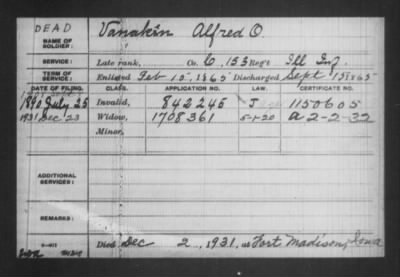 DEAD
NAME OF SOLDIER: Vanakin Alfred O.
SERVICE: Late rank, Co. C, 153 Reg't Ill Inf.
TERM OF SERVICE: Enlisted Feb 15, 1865 Discharged Sept 15 1865
DATE OF FILING. CLASS. APPLICATION NO. LAW. CERTIFICATE NO.
1890 July 25 Invalid, 842245 J 1150605
1931 Dec 23 Widow, 1708361 5-1-20 a 2-2-32
Minor,
ADDITIONAL SERVICES:
REMARKS:
Died Dec 2, 1931, at Fort Madison, Iowa